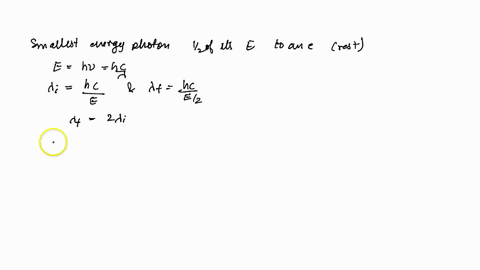 Smallest energy photon 1/2 of its E to an e (rest)
E = hν = hc/λ
λi = hc/E & λf = hc/E/2
λf = 2λi